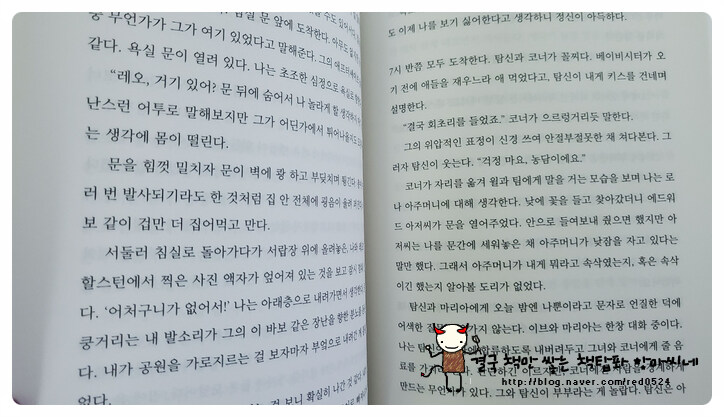 중 무언가가 그가 여기 있었다고 말해준다. 그의
같다. 욕실 문이 열려 있다. 나는 초조한 심정으로 욕실로
“레오, 거기 있어? 문 뒤에 숨어서 나 놀라게 할 생각
난스런 어투로 말해보지만 그가 어딘가에서 튀어나올지도
는 생각에 몸이 떨린다.
문을 힘껏 밀치자 문이 벽에 쾅 하고 부딪치며 튕긴다.
러 번 발사되기라도 한 것처럼 집 안 전체에 굉음이 울려
보 같이 겁만 더 집어먹고 만다.
서둘러 침실로 돌아가다가 서랍장 위에 올려놓은,
할스턴에서 찍은 사진 액자가 엎어져 있는 것을 보고
다. ‘어처구니가 없어서!’ 나는 아래층으로 내려가면서
쿵거리는 내 발소리가 그의 이 바보 같은 장난을 향한
다. 내가 공원을 가로지르는 걸 보자마자 부엌으로 내려간
는 보니 확실히 나간 것
없었다.
도 이제 나를 보기 싫어한다고 생각하니 정신이 아득하다.
7시 반쯤 모두 도착한다. 탐신과 코너가 꼴찌다. 베이비시터가 오
기 전에 애들을 재우느라 애 먹었다고, 탐신이 내게 키스를 건네며
설명한다.
“결국 회초리를 들었죠.” 코너가 으르렁거리듯 말한다.
그의 위압적인 표정이 신경 쓰여 안절부절못한 채 쳐다본다. 그
러자 탐신이 웃는다. “걱정 마요. 농담이에요.”
코너가 자리를 옮겨 윌과 팀에게 말을 거는 모습을 보며 나는 로
나 아주머니에 대해 생각한다. 낮에 꽃을 들고 찾아갔더니 에드워
드 아저씨가 문을 열어주었다. 안으로 들여보내 줬으면 했지만 아
저씨는 나를 문간에 세워놓은 채 아주머니가 낮잠을 자고 있다는
말만 했다. 그래서 아주머니가 내게 뭐라고 속삭였는지, 혹은 속삭
이긴 했는지 알아볼 도리가 없었다.
탐신과 마리아에게 오늘 밤엔 나뿐이라고 문자로 언질한 덕에
어색한 질 가지 않는다. 이브와 마리아는 한창 대화 중이다.
나는 탐 합류하도록 내버려두고 그녀와 코너에게 줄 음
료를 가
만드는 무언가가 있다. 그와 탐신이 부부라는 게 놀랍다. 탐신은 아
결국 책만 쌓은 책탑파 항아씨네
http://blog.naver.com/red0524